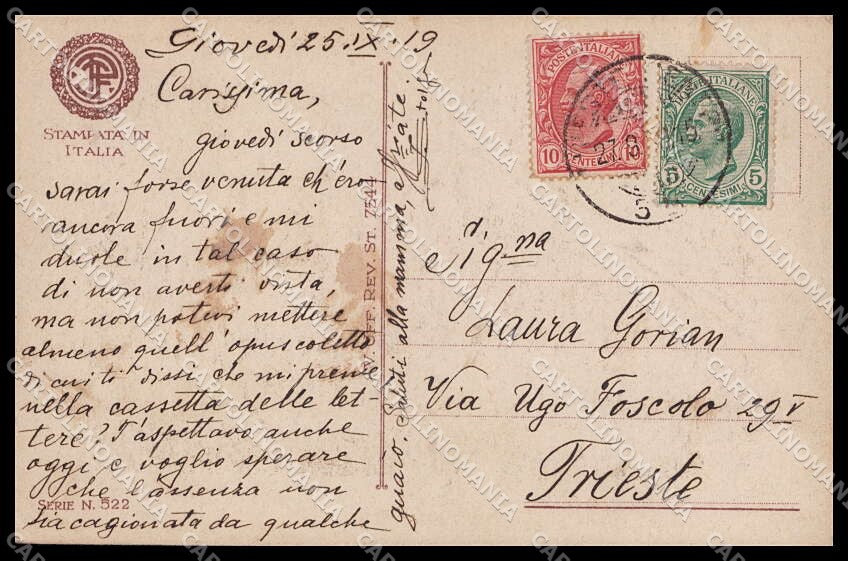 Giovedì 25.IX.19
Carissima,
giovedì scorso
sarai forse venuta ch'ero
ancora fuori e mi
duole in tal caso
di non averti vista,
ma non potevi mettere
almeno quell'opuscoletto
di cui ti dissi, che mi preme
nella cassetta delle let-
tere? T'aspettavo anche
oggi e voglio sperare
che l'assenza non
sia cagionata da qualche
guaio. Saluti alla mamma, a
STAMPATA IN
ITALIA
SERIE N. 522
REV. ST. 7544
POSTE ITALIANE
10 CENTESIMI 10
POSTE ITALIANE
5 CENTESIMI 5
Sig.na
Laura Gorian
Via Ugo Foscolo 29 V
Trieste
CARTOLINOMANIA